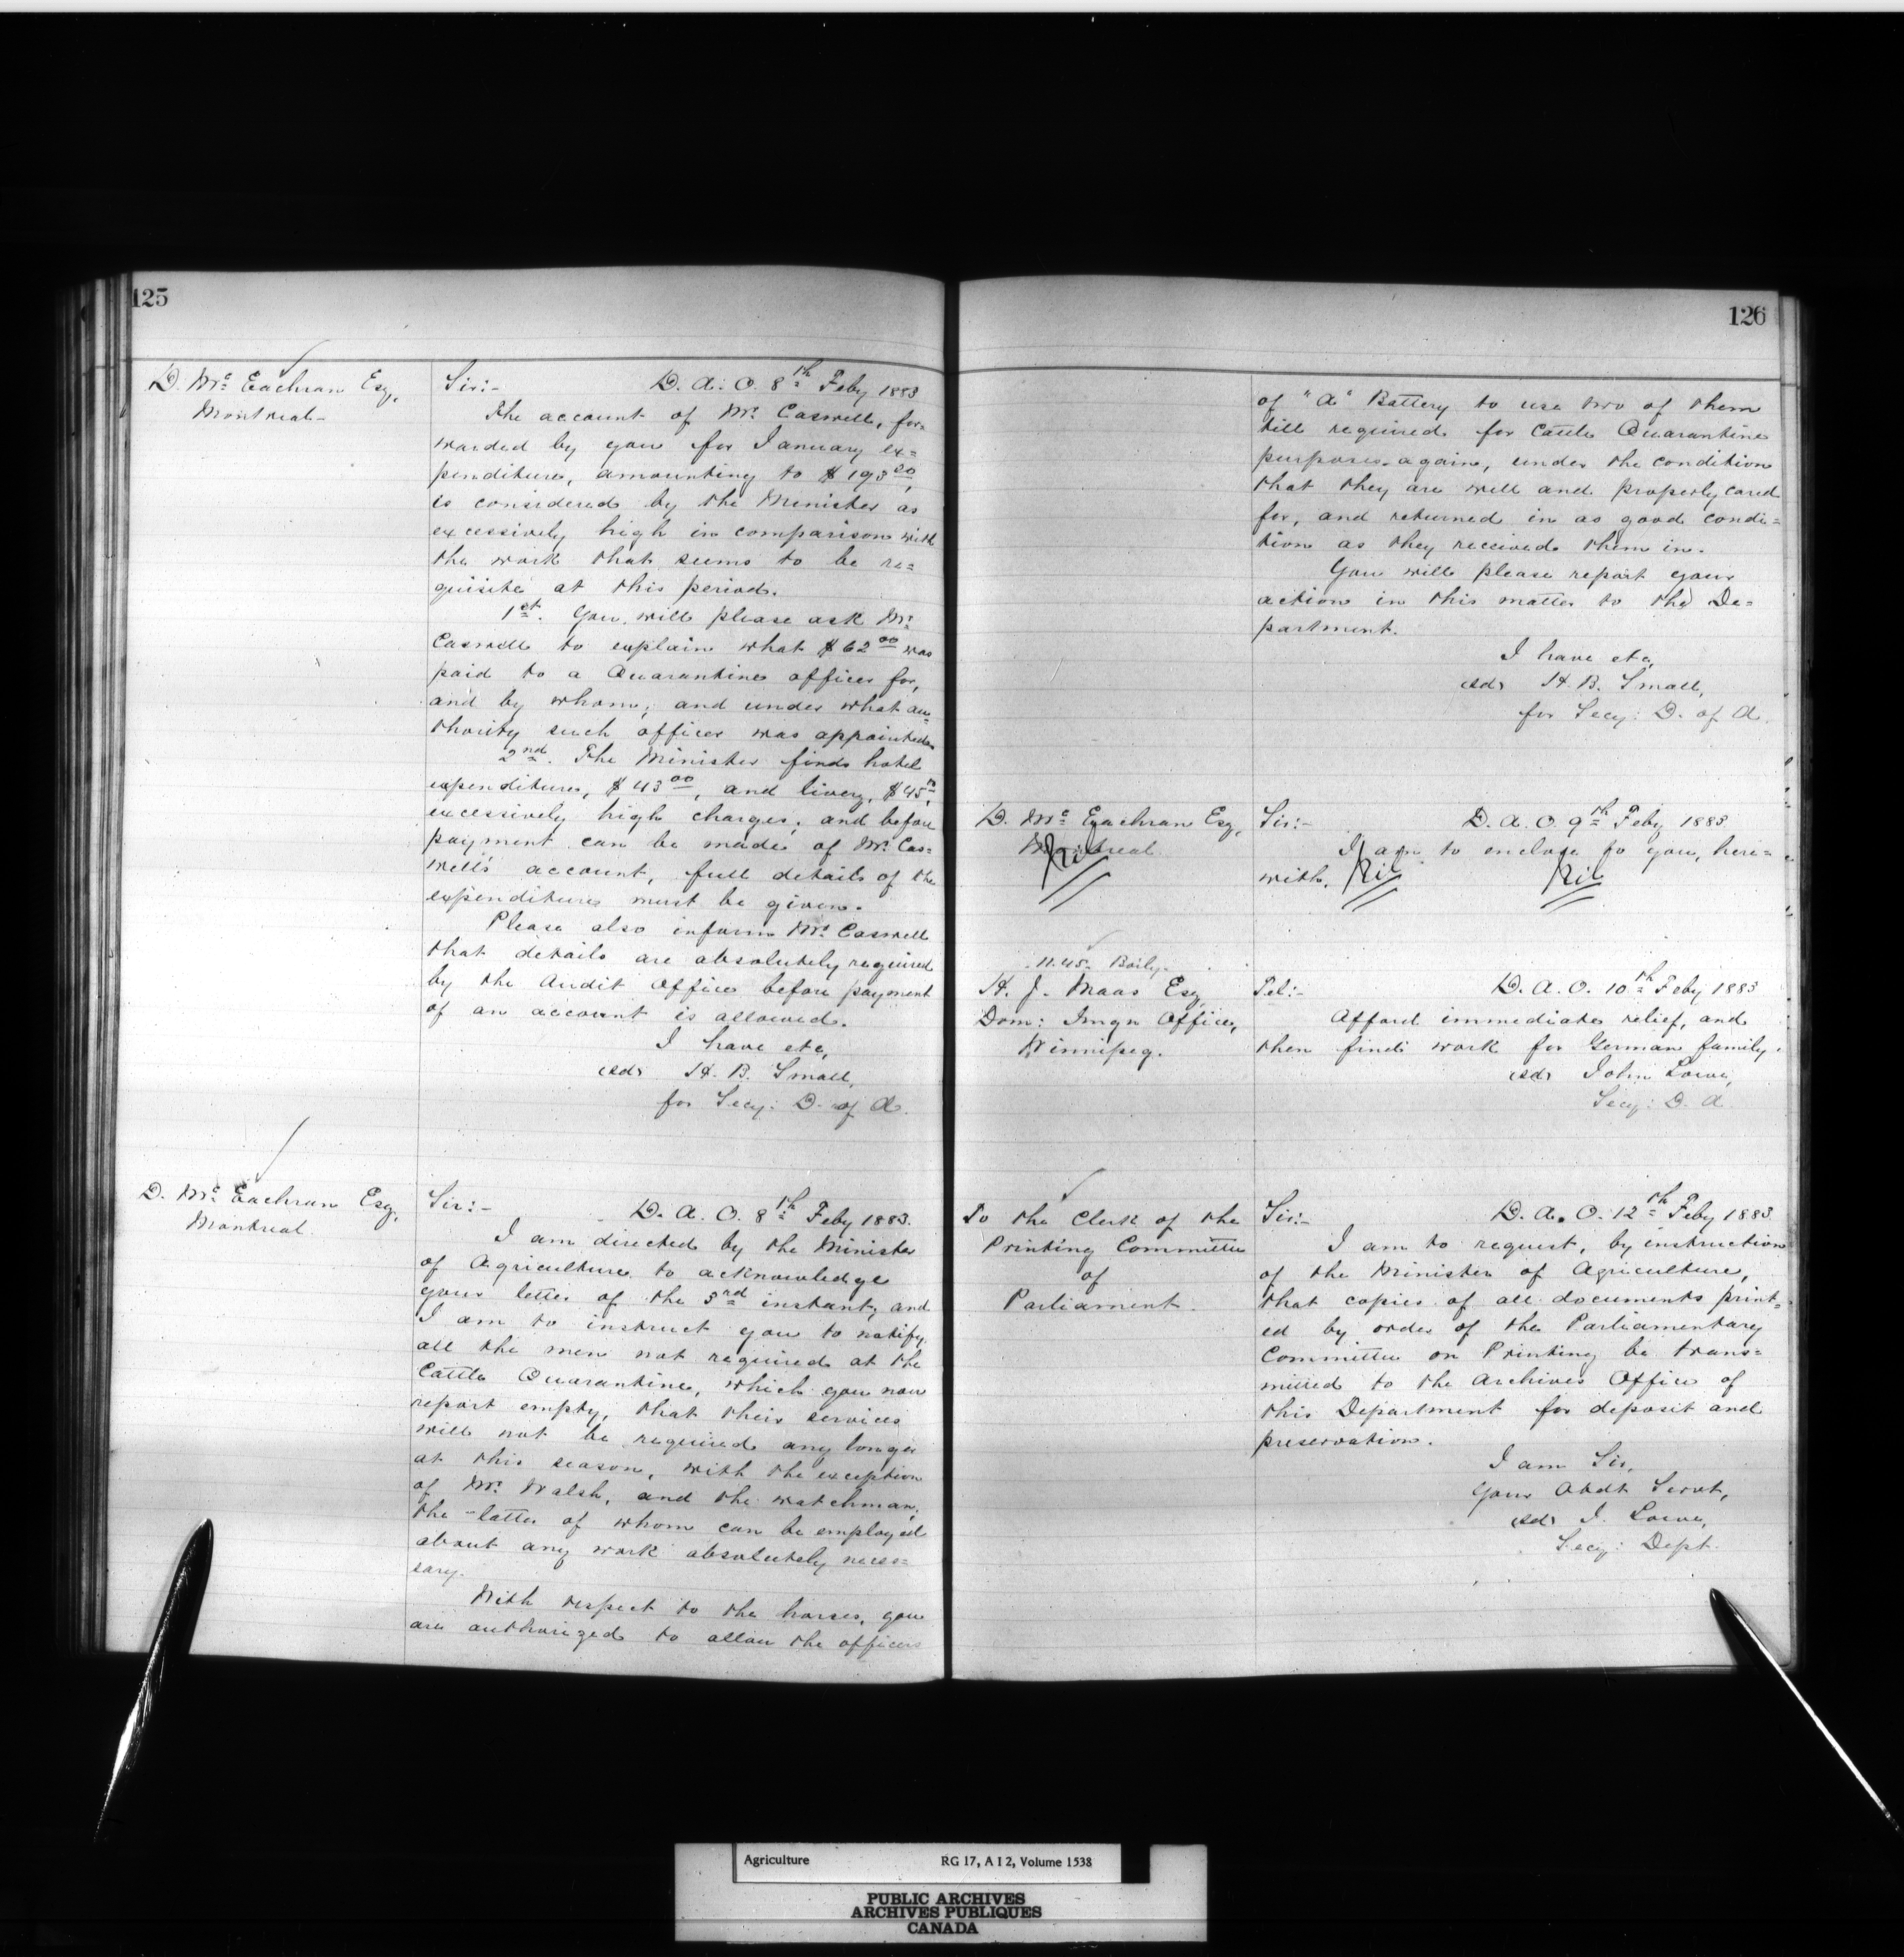 125
D. Mc Eachran Esq,
Montreal-
Sir:- D. A. O. 8th Feby 1883
The account of Mr. Caswell, for=
warded by you for January ex=
penditure, amounting to $193.20,
is considered by the Minister as
excessively high in comparison with
the work that seems to be re=
quisite at this period.
1st. You will please ask Mr.
Caswell to explain what $62.00 was
paid to a Quarantine officer for,
and by whom; and under what au=
thority such officer was appointed.
2nd. The Minister finds hotel
expenditure, $43.00, and livery, $45.
excessively high charges; and before
payment can be made of Mr. Cas=
well's account, full details of the
expenditures must be given.
Please also inform Mr. Caswell
that details are absolutely required
by the Audit Office before payment
of an account is allowed.
I have etc,
(sd) H. B. Small,
for Secy: D. of A.
D. Mc Eachran Esq,
Montreal.
Sir:- D. A. O. 8th Feby 1883.
I am directed by the Minister
of Agriculture to acknowledge
your letter of the 3rd instant, and
I am to instruct you to notify
all the men not required at the
Cattle Quarantine, which you now
report empty, that their services
will not be required any longer
at this season, with the exception
of Mr. Walsh, and the watchman;
the latter of whom can be employed
about any work absolutely neces=
sary.
With respect to the horses, you
are authorized to allow the officers
126
of "A" Battery to use two of them
till required for Cattle Quarantine
purposes again, under the condition
that they are well and properly cared
for, and returned in as good condi=
tion as they received them in.
You will please report your
action in this matter to the De=
partment.
I have etc,
(sd) H. B. Small,
for Secy: D. of A.
D. Mc Eachran Esq,
Montreal.
Nil
Sir:- D. A. O. 9th Feby 1883
I am to enclose to you, here=
with, Nil Nil
11.45. Baily.
H. J. Maas Esq,
Dom: Imgn Office,
Winnipeg.
Tel:- D. A. O. 10th Feby 1883
Afford immediate relief, and
then find work for German family.
(sd) John Lowe,
Secy: D. A.
To the Clerk of the
Printing Committee
of
Parliament.
Sir:- D. A. O. 12th Feby 1883.
I am to request, by instruction
of the Minister of Agriculture,
that copies of all documents print=
ed by order of the Parliamentary
Committee on Printing be trans=
mitted to the Archives Office of
this Department for deposit and
preservation.
I am Sir,
Your Obdt Servt,
(sd) J. Lowe,
Secy: Dept.
Agriculture RG 17, A I 2, Volume 1538
PUBLIC ARCHIVES
ARCHIVES PUBLIQUES
CANADA